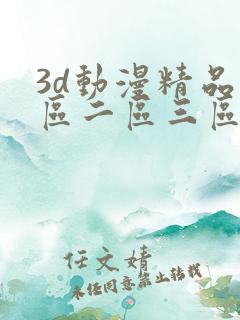 3d動漫精品
區二區三區
任文婧
未经同意禁止转载